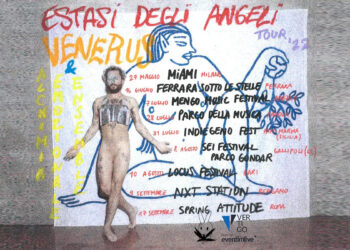 ESTASI DEGLI ANGELI
VENERUS
TOUR '22
&
ALCHIMIA
EMOZIONALE
ENSEMBLE
29 MAGGIO MIAMI MILANO
GIUGNO FERRARA SOTTO LE STELLE FERRARA
LUGLIO MENGO MUSIC FESTIVAL
28 LUGLIO PARCO DELLA MUSICA
31 LUGLIO INDIEGENO FEST
AGOSTO SEI FESTIVAL
PARCO GONDAR GALLIPOLI (LE)
10 AGOSTO LOCUS FESTIVAL BARI
SETTEMBRE NXT STATION BERGAMO
17 SETTEMBRE SPRING ATTITUDE ROMA
VERGO
eventimlive